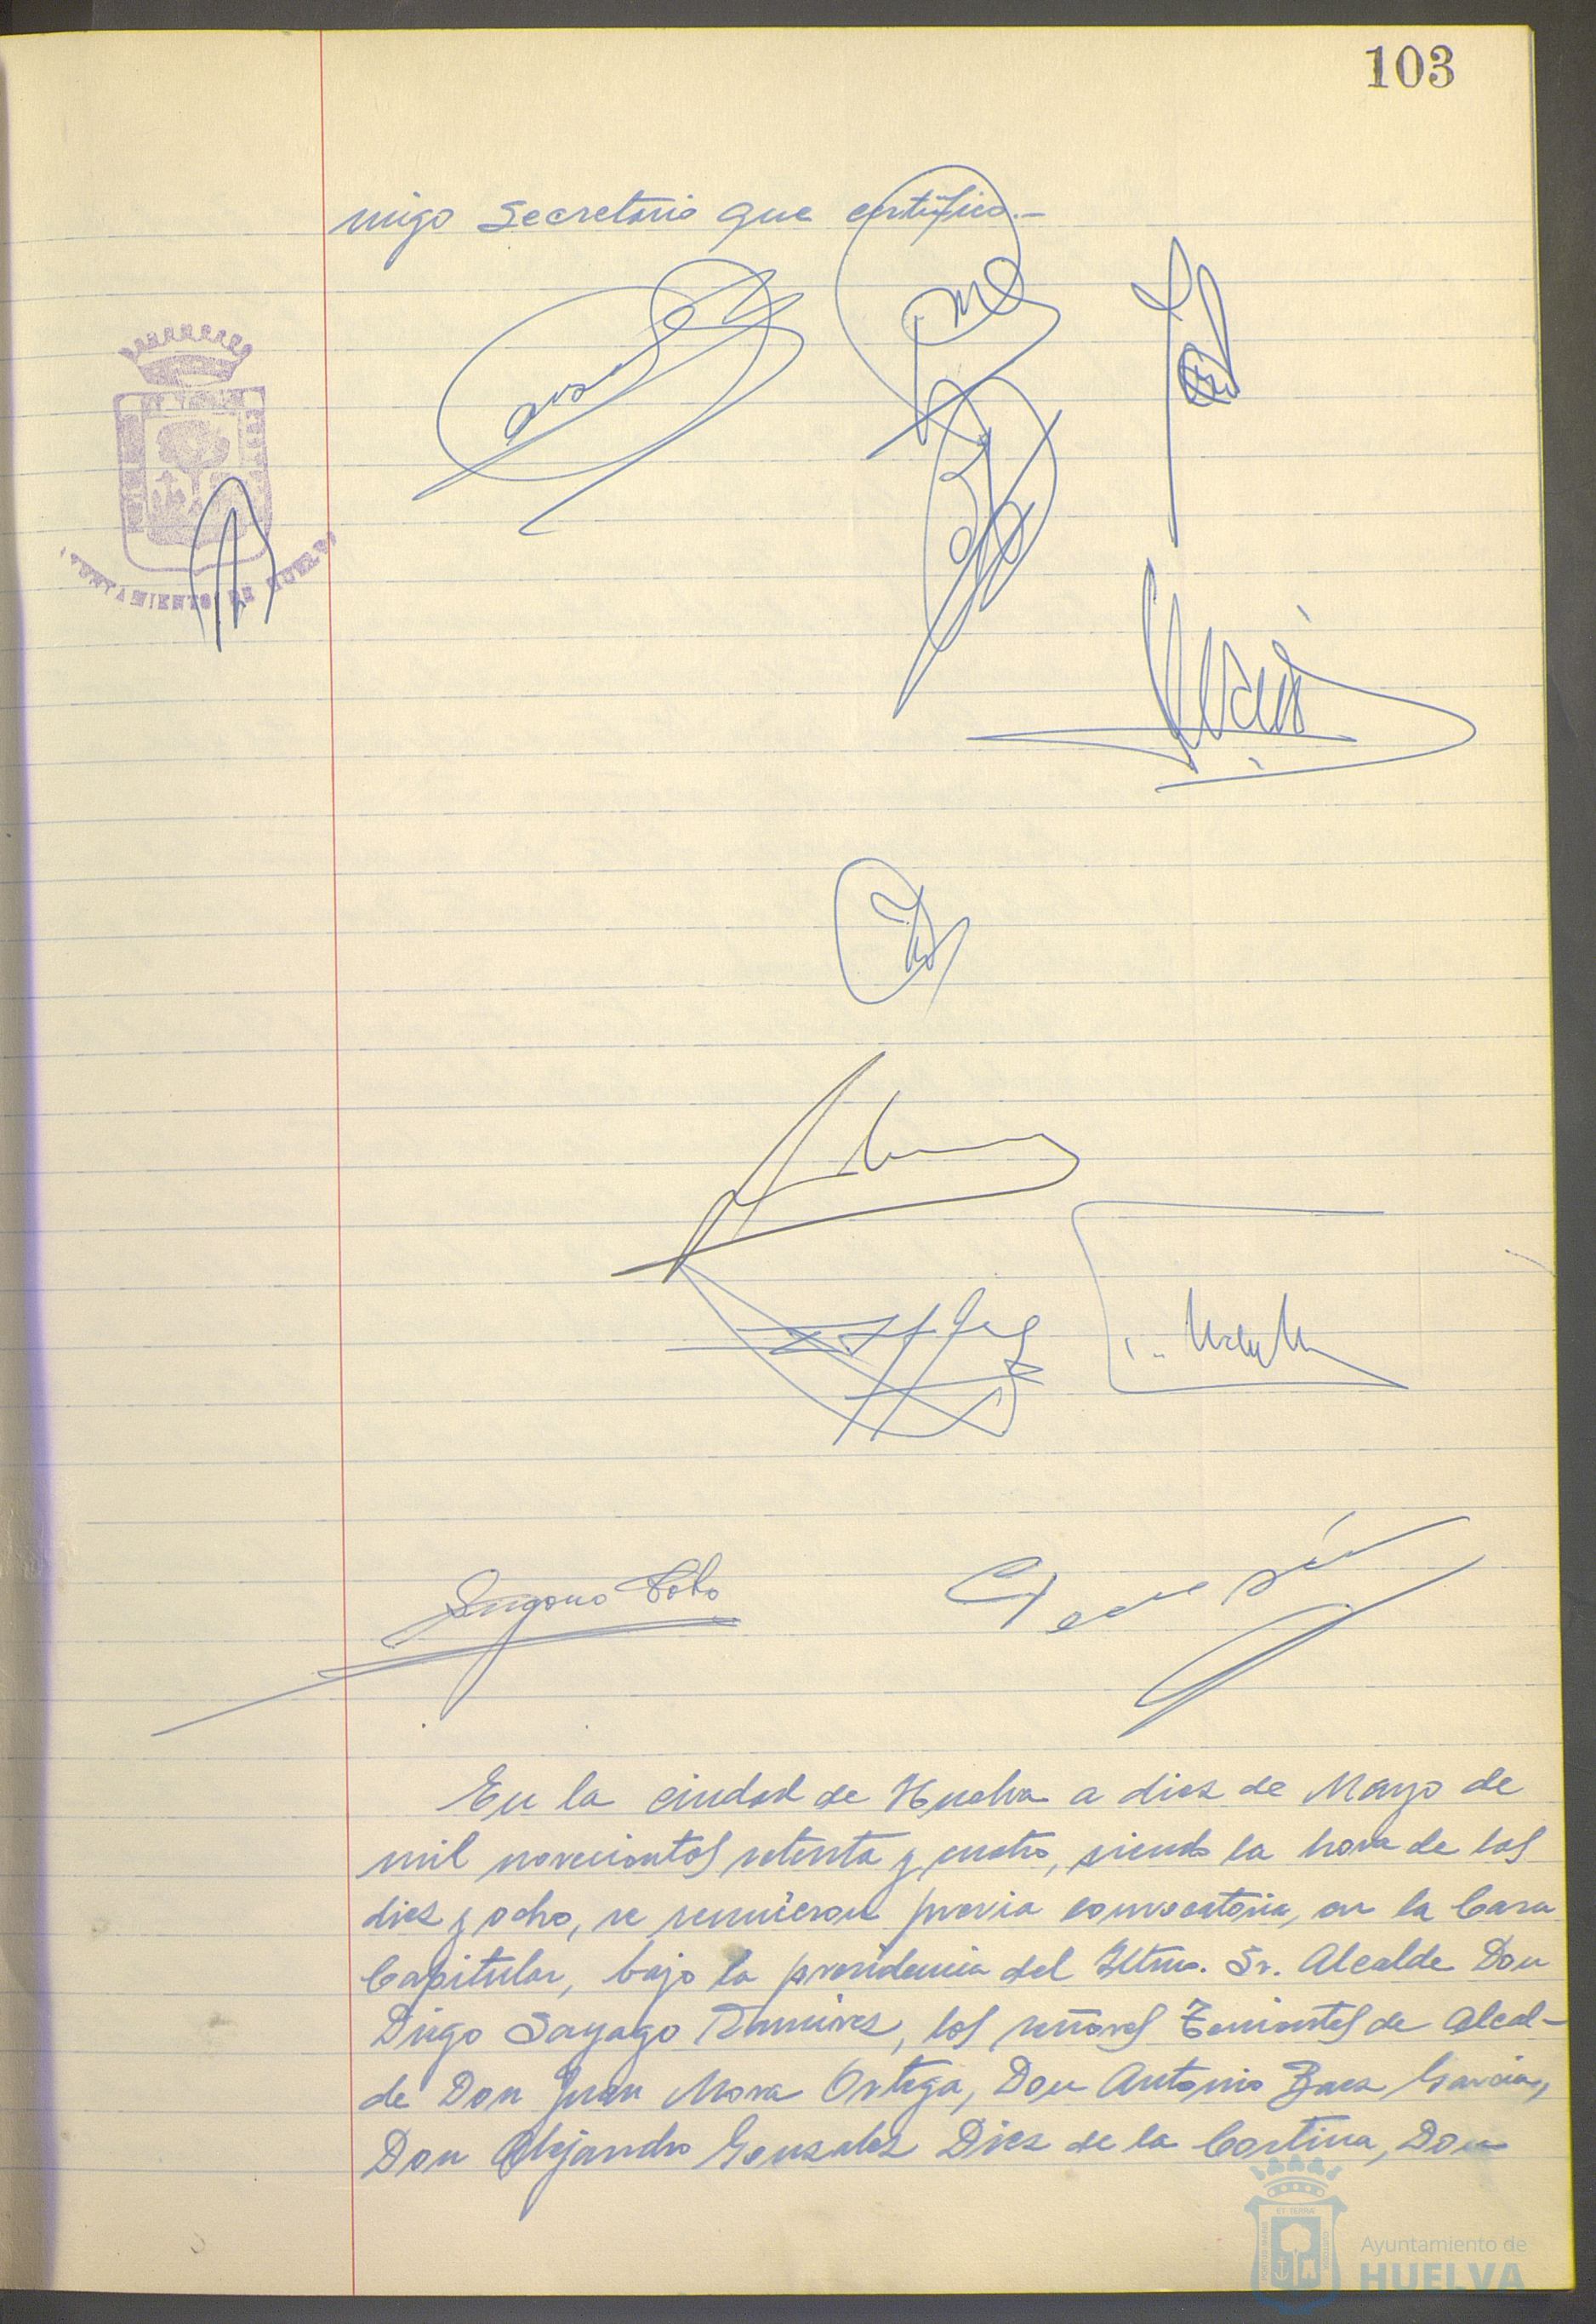 103
migo Secretario que certifico.-
AYUNTAMIENTO DE HUELVA
En la ciudad de Huelva a diez de Mayo de
mil novecientos setenta y cuatro, siendo la hora de las
diez y ocho, se reunieron previa convocatoria, en la Casa
Capitular, bajo la presidencia del Iltmo. Sr. Alcalde Don
Diego Sayago Ramirez, los señores Tenientes de Alcal-
de Don Juan Mora Ortega, Don Antonio Baez Garcia,
Don Alejandro Gonzalez Diez de la Cortina, Don
Ayuntamiento de
HUELVA